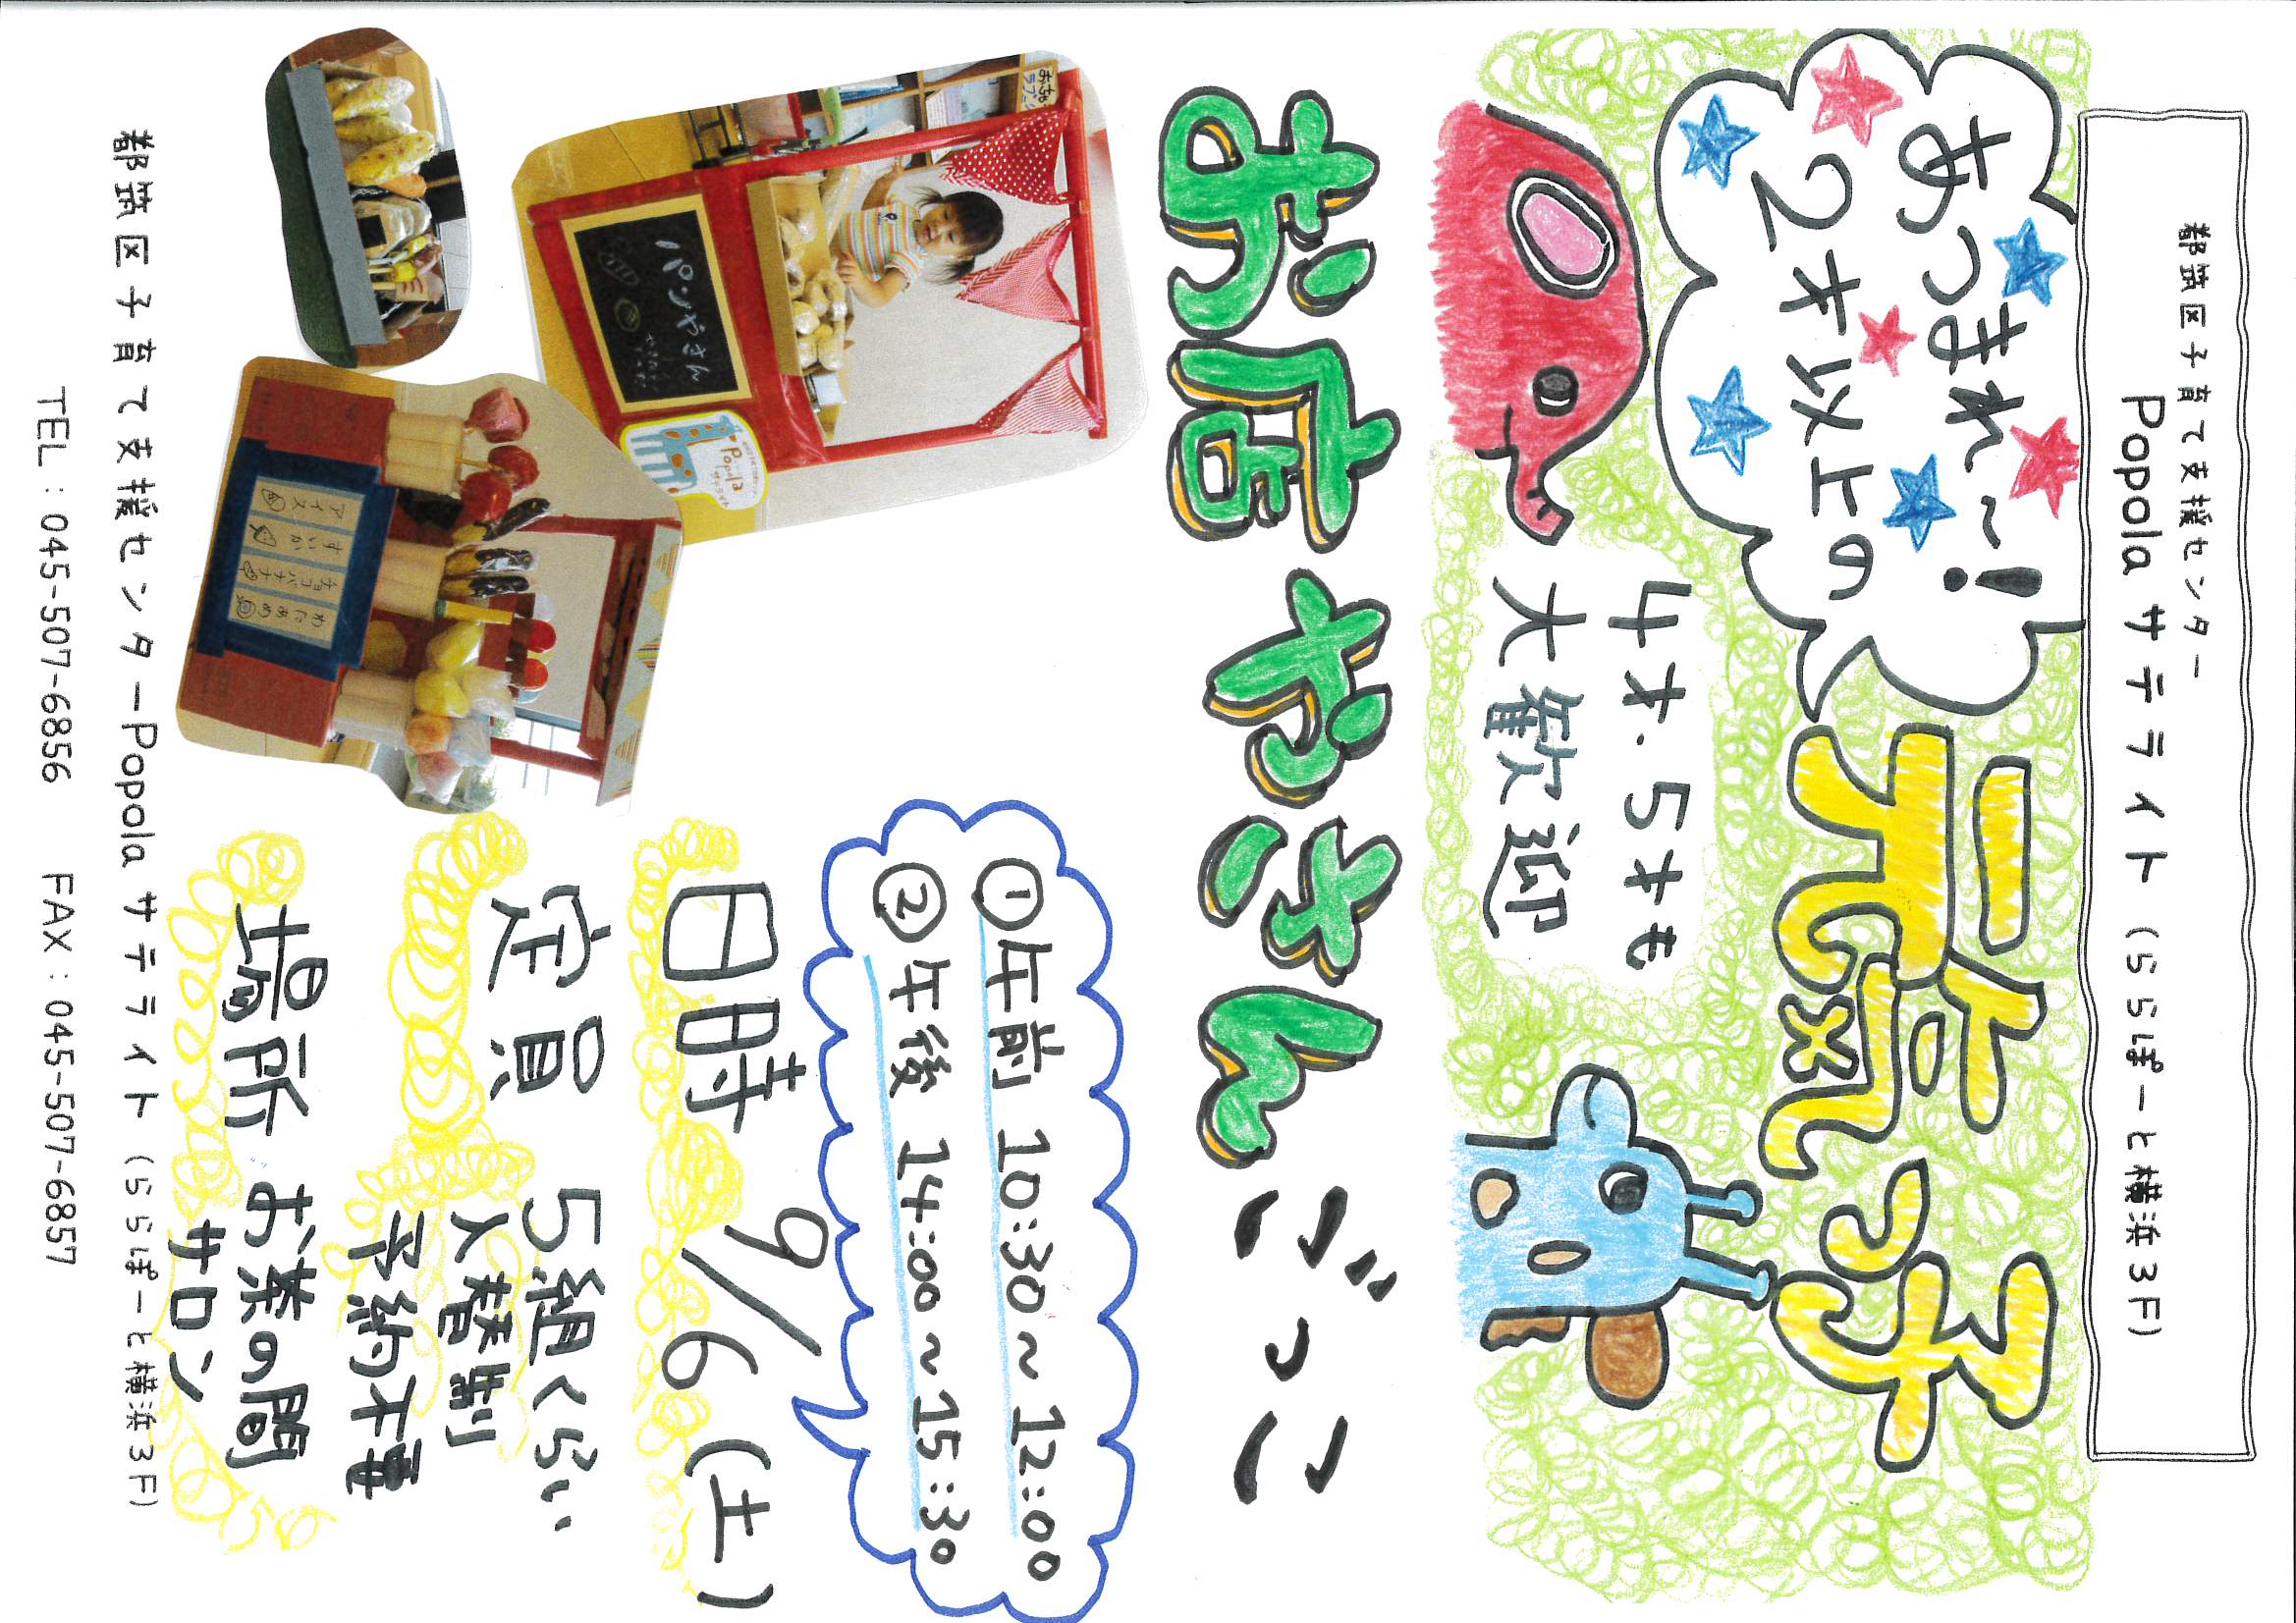 都筑区子育て支援センター
Popolaサテライト（ららぽーと横浜3F）
あつまれ～！
2才以上の
元気っ子
4才.5才も
大歓迎
お店やさんごっこ
①午前 10:30～12:00
②午後 14:00～15:30
日時 9/6（土）
定員 5組くらい
入替制
予約不要
場所 お茶の間
サロン
パンやさん
Popola
サテライト
アイス
すいか
チョコバナナ
わたあめ
都筑区子育て支援センターPopolaサテライト（ららぽーと横浜3F）
TEL：045-507-6856 FAX：045-507-6857